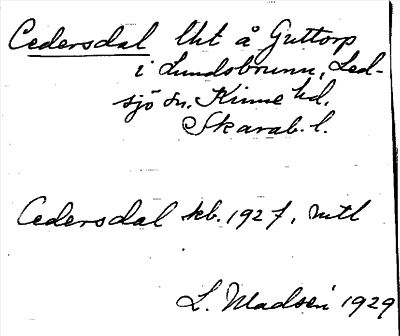 Cedersdal lht å Guttorp
i Lundsbrunn, Led-
sjö sn. Kinne hd.
Skarab. l.
Cedersdal kb. 1927, mtl
L. Madsén 1929